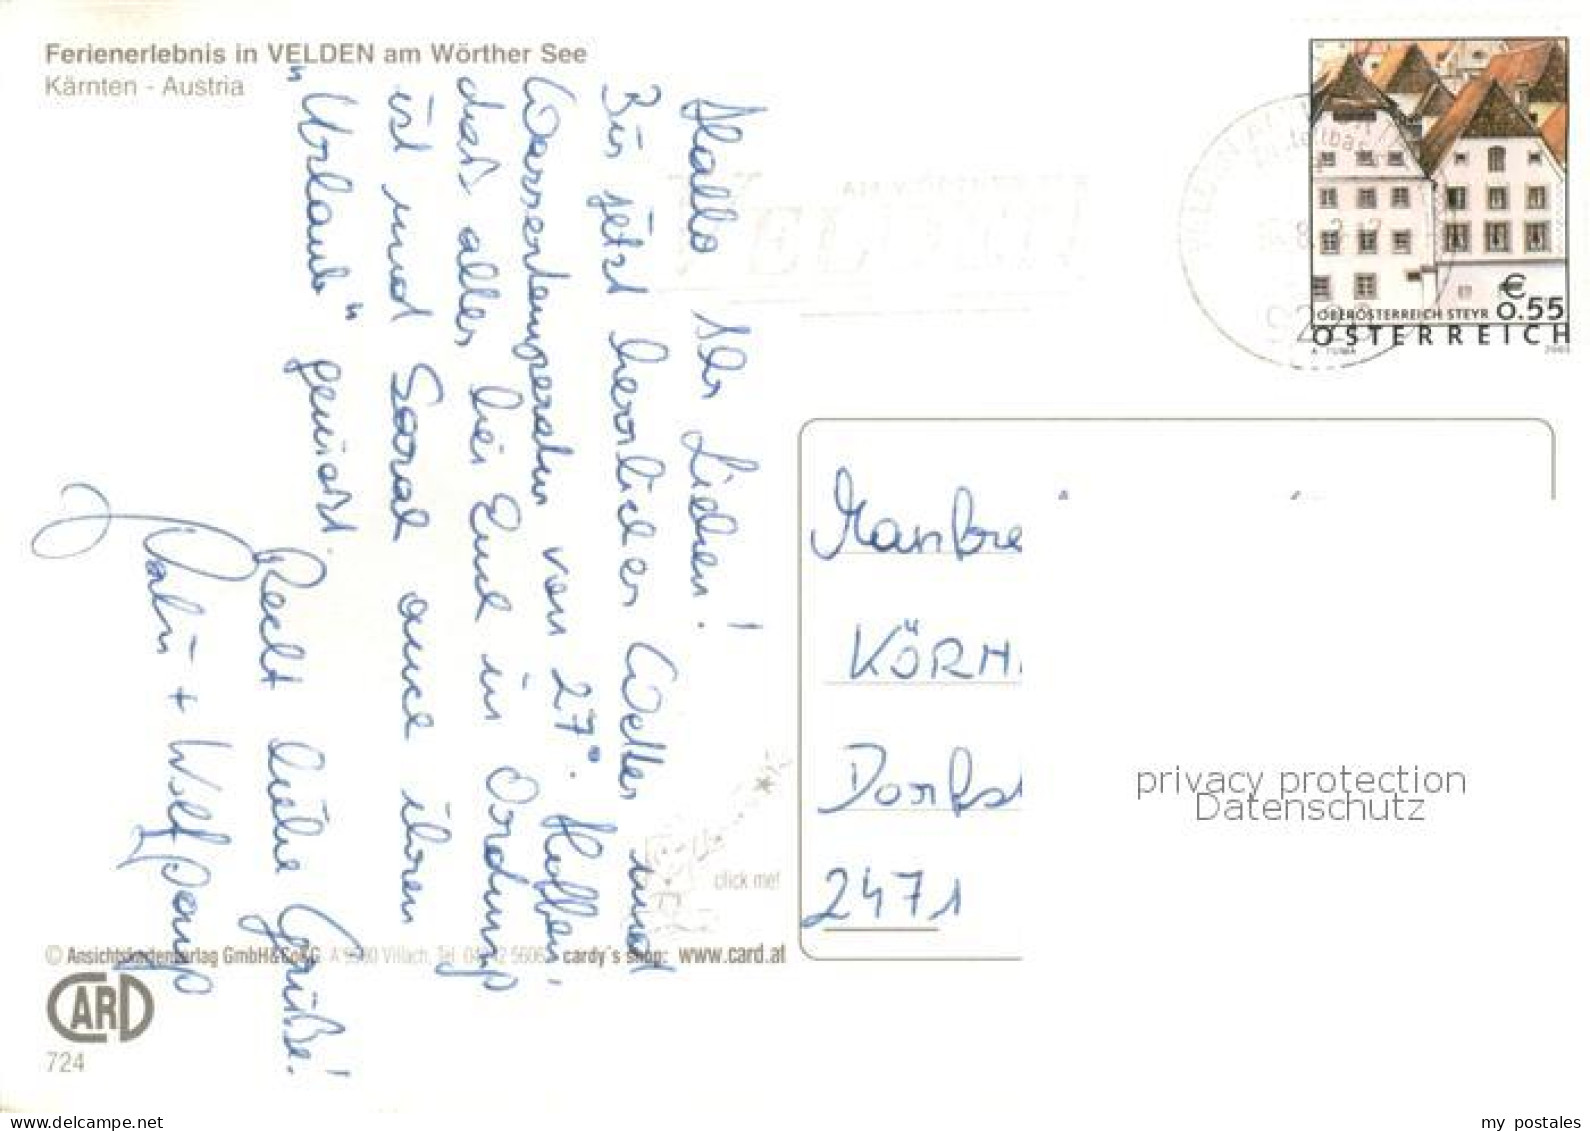 Ferienerlebnis in VELDEN am Wörther See
Kärnten - Austria
Hallo Ihr Lieben!
Bis jetzt herrliches Wetter und
Wassertemperatur von 27°. Hoffen,
daß alles bei Euch in Ordnung
ist und Sarah auch ihren
"Urlaub" genießt.
Recht liebe Grüße!
+ Wolfgang
€
0.55
OBERÖSTERREICH STEYR
ÖSTERREICH
A. TUMA
KÖRN
Dorfst
2471
privacy protection
Datenschutz
click me!
© Ansichtskartenverlag GmbH&CoKG, Villach, Tel. cardy´s shop: www.card.at
CARD
724
my postales